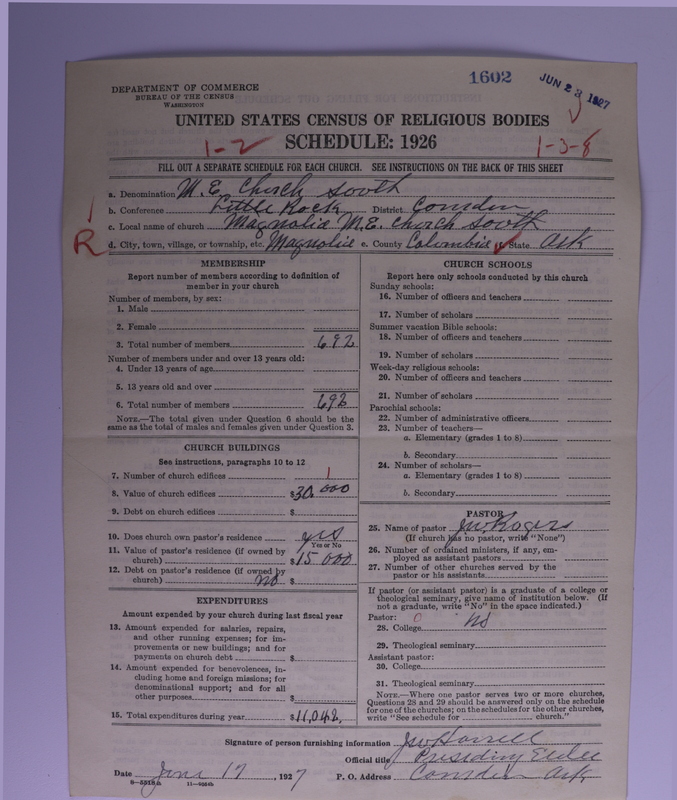 1602
JUN 23 1927
DEPARTMENT OF COMMERCE
BUREAU OF THE CENSUS
WASHINGTON
UNITED STATES CENSUS OF RELIGIOUS BODIES
SCHEDULE: 1926
1-2
1-3-8
FILL OUT A SEPARATE SCHEDULE FOR EACH CHURCH. SEE INSTRUCTIONS ON THE BACK OF THIS SHEET
a. Denomination M.E. Church South
b. Conference Little Rock District Camden
c. Local name of church Magnolia M.E. Church South
R
d. City, town, village, or township, etc. Magnolia e. County Columbia f. State Ark
MEMBERSHIP
Report number of members according to definition of
member in your church
Number of members, by sex:
1. Male
2. Female
3. Total number of members 692
Number of members under and over 13 years old:
4. Under 13 years of age
5. 13 years old and over
6. Total number of members 692
NOTE.—The total given under Question 6 should be the
same as the total of males and females given under Question 3.
CHURCH BUILDINGS
See instructions, paragraphs 10 to 12
7. Number of church edifices 1
8. Value of church edifices $30,000
9. Debt on church edifices $
10. Does church own pastor's residence yes
Yes or No
11. Value of pastor's residence (if owned by
church) $15000
12. Debt on pastor's residence (if owned by
church) no $
EXPENDITURES
Amount expended by your church during last fiscal year
13. Amount expended for salaries, repairs,
and other running expenses; for im-
provements or new buildings; and for
payments on church debt $
14. Amount expended for benevolences, in-
cluding home and foreign missions; for
denominational support; and for all
other purposes $
15. Total expenditures during year $11,042,
CHURCH SCHOOLS
Report here only schools conducted by this church
Sunday schools:
16. Number of officers and teachers
17. Number of scholars
Summer vacation Bible schools:
18. Number of officers and teachers
19. Number of scholars
Week-day religious schools:
20. Number of officers and teachers
21. Number of scholars
Parochial schools:
22. Number of administrative officers
23. Number of teachers—
a. Elementary (grades 1 to 8)
b. Secondary
24. Number of scholars—
a. Elementary (grades 1 to 8)
b. Secondary
PASTOR
25. Name of pastor J.W. Rogers
(If church has no pastor, write "None")
26. Number of ordained ministers, if any, em-
ployed as assistant pastors
27. Number of other churches served by the
pastor or his assistants
If pastor (or assistant pastor) is a graduate of a college or
theological seminary, give name of institution below. (If
not a graduate, write "No" in the space indicated.)
Pastor: 0
28. College no
29. Theological seminary
Assistant pastor:
30. College
31. Theological seminary
NOTE.—Where one pastor serves two or more churches,
Questions 28 and 29 should be answered only on the schedule
for one of the churches; on the schedules for the other churches,
write "See schedule for church."
Signature of person furnishing information J.W. Harrell
Official title Presiding Elder
Date June 17, 1927 P. O. Address Camden Ark